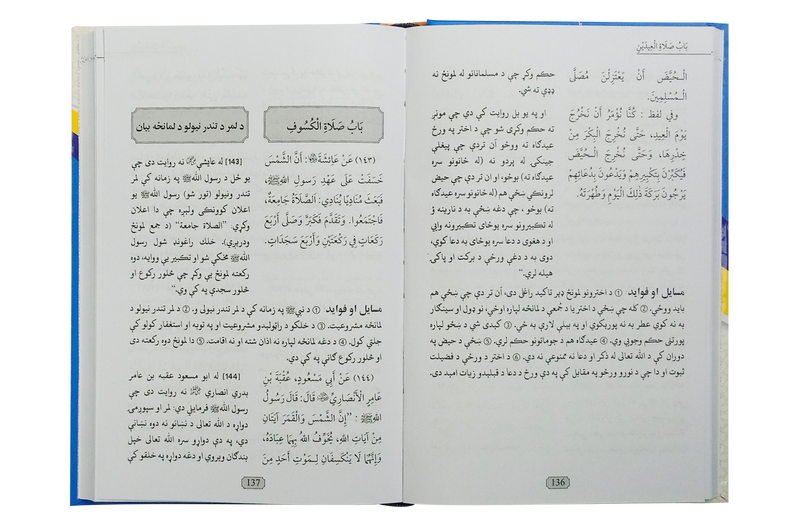 بَابُ صَلَاةِ الْعِيدَيْنِ
الْـحُيَّضَ أَنْ يَعْتَزِلْنَ مُصَلَّى
الْـمُسْلِمِينَ.
وفي لفظ : كُنَّا نُؤْمَرُ أَنْ نَخْرُجَ
يَوْمَ الْعِيدِ، حَتَّى نُخْرِجَ الْبِكْرَ مِنْ
خِدْرِهَا، وَحَتَّى نُخْرِجَ الْـحُيَّضَ
فَيُكَبِّرْنَ بِتَكْبِيرِهِمْ وَيَدْعُونَ بِدُعَائِهِمْ
يَرْجُونَ بَرَكَةَ ذَلِكَ الْيَوْمِ وَطُهْرَتَهُ.
حکم وکړ چې د مسلمانانو له لمونځ نه
ډډې ته شي.
او په یو بل روایت کې دي چې مونږ
ته حکم وکړی شو چې د اختر په ورځ
عیدګاه ته ووځو آن تردې چې پیغلې
جینکۍ له پردو نه (له خانونو سره
عیدګاه ته) بوځو، او آن تر دې چې حیض
لرونکې ښځې هم (له ځانونو سره عیدګاه
ته) بوځو، چې دغه ښځې به د نارینه ؤ
له تکبیرونو سره یوځای تکبیرونه وايي
او د هغوی د دعا سره یوځای به دعا کوي،
دوی به د دغې ورځې د برکت او پاکۍ
هیله لري."
مسایل او فواید: ① د اخترونو لمونځ ډېر تاکید راغلی دی، آن تر دې چې ښځې هم
باید ووځي. ② کله چې ښځې د اختر یا د جُمعې د لمانځه لپاره اوځي، نو ډول او سینګار
به نه کوي عطر به نه پورېکوي او په بېلې لارې به ځي. ③ کېدی شي د ښځو لپاره
پورتنی حکم وجوبي وي. ④ عیدګاه هم د جوماتونو حکم لري. ⑤ ښځې د حیض په
دوران کې د الله تعالی له ذکر او دعا نه ممنوعې نه دي. ⑥ د اختر د ورځې د فضیلت
ثبوت او دا چې د نورو ورځو په مقابل کې په دې ورځ د دعا د قبلېدو زیات امید دی.
136
بَابُ صَلَاةِ الْكُسُوفِ
د لمر د تندر نیولو د لمانځه بیان
(١٤٣) عَنْ عَائِشَةَ : أَنَّ الشَّمْسَ
خَسَفَتْ عَلَى عَهْدِ رَسولِ اللهِﷺ،
فَبَعَثَ مُنَادِيًا يُنَادِي: اَلصَّلَاةُ جَامِعَةٌ،
فَاجْتَمَعُوا. وَتَقَدَّمَ فَكَبَّرَ وَصَلَّى أَرْبَعَ
رَكَعَاتٍ فِي رَكْعَتَيْنِ وَأَرْبَعَ سَجَدَاتٍ.
[143] له عایشې نه روایت دی چې
یو ځل د رسول اللهﷺ په زمانه کې لمر
تندر ونیولو (تور شو) رسول اللهﷺ یو
اعلان کوونکی ولېږه چې دا اعلان
وکړي: "الصلاة جامعة" (د جمع لمونځ
ودرېږي). خلك راغونډ شول رسول
اللهﷺ مخکې شو او تکبیر یې ووایه، دوه
رکعته لمونځ یې وکړ چې څلور رکوع او
څلور سجدې په کې وې."
مسایل او فواید: ① د نبيﷺ په زمانه کې د لمر تندر نیولی و. ② د لمر تندر نیولو د
لمانځه مشروعیت. ③ د خلکو د راټولېدو مشروعیت او په توبه او استغفار کولو کې
جلتي کول. ④ د دغه لمانځه لپاره نه اذان شته او نه اقامت. ⑤ دا لمونځ دوه رکعته دی
او څلور رکوع ګانې په کې دي.
(١٤٤) عَنْ أَبِي مَسْعُودٍ، عُقْبَةَ بْنِ
عَامِرٍ الْأَنْصَارِيِّ قَالَ: قَالَ رَسُولُ
اللهِﷺ: "إِنَّ الشَّمْسَ وَالْقَمَرَ آيَتَانِ
مِنْ آيَاتِ اللهِ، يُخَوِّفُ اللهُ بِهِمَا عِبَادَهُ،
وَإِنَّهُمَا لَا يَنْكَسِفَانِ لِـمَوْتِ أَحَدٍ مِنَ
[144] له ابو مسعود عقبه بن عامر
بدري انصاري نه روایت دی چې
رسول اللهﷺ فرمایلي دي: لمر او سپوږمۍ
د الله تعالی د نښانو نه دوه نښانې
دي، په دې دواړو سره الله تعالی خپل
بندګان ویروي او دغه دواړه په خلقو کې
137